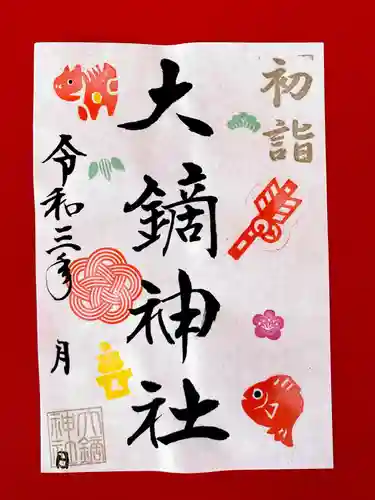 初詣
大鏑神社
令和三年 月 日
大鏑神社